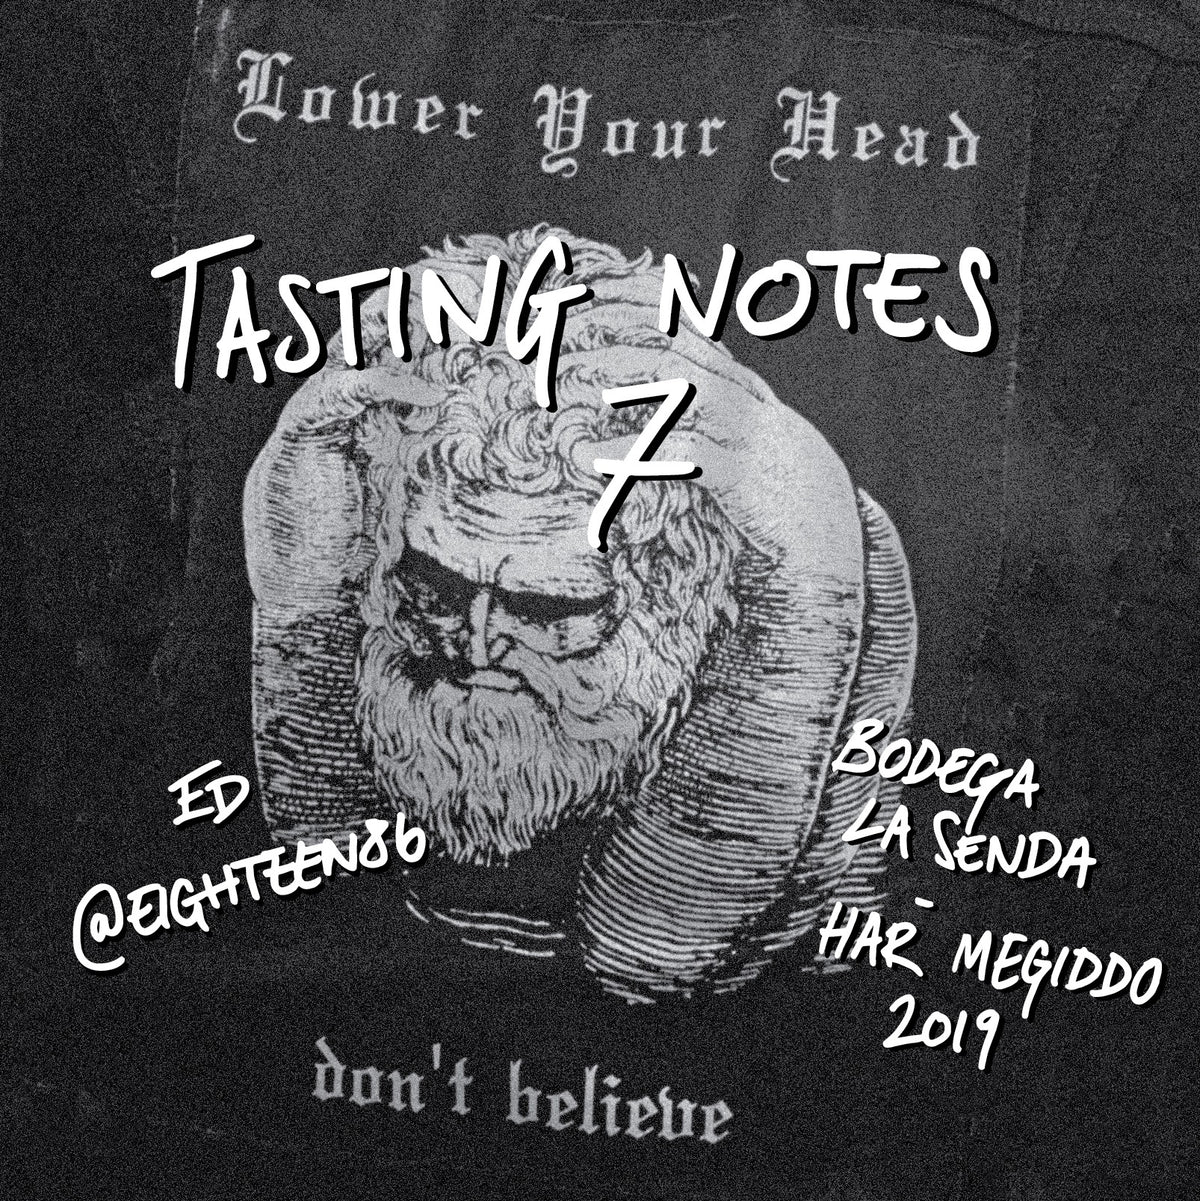 Lower Your Head
TASTING NOTES
7
ED
@EIGHTEEN86
BODEGA
LA SENDA
-
HAR MEGIDDO
2019
don't believe